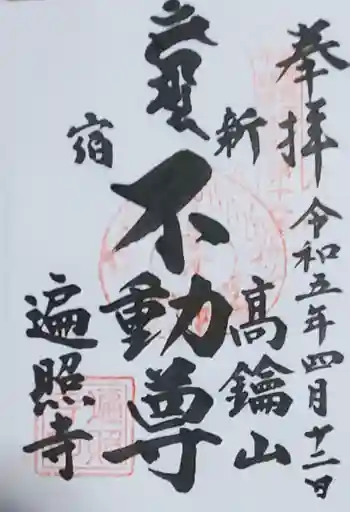 奉拝
令和五年四月十二日
新宿
高鑰山
不動尊
遍照寺